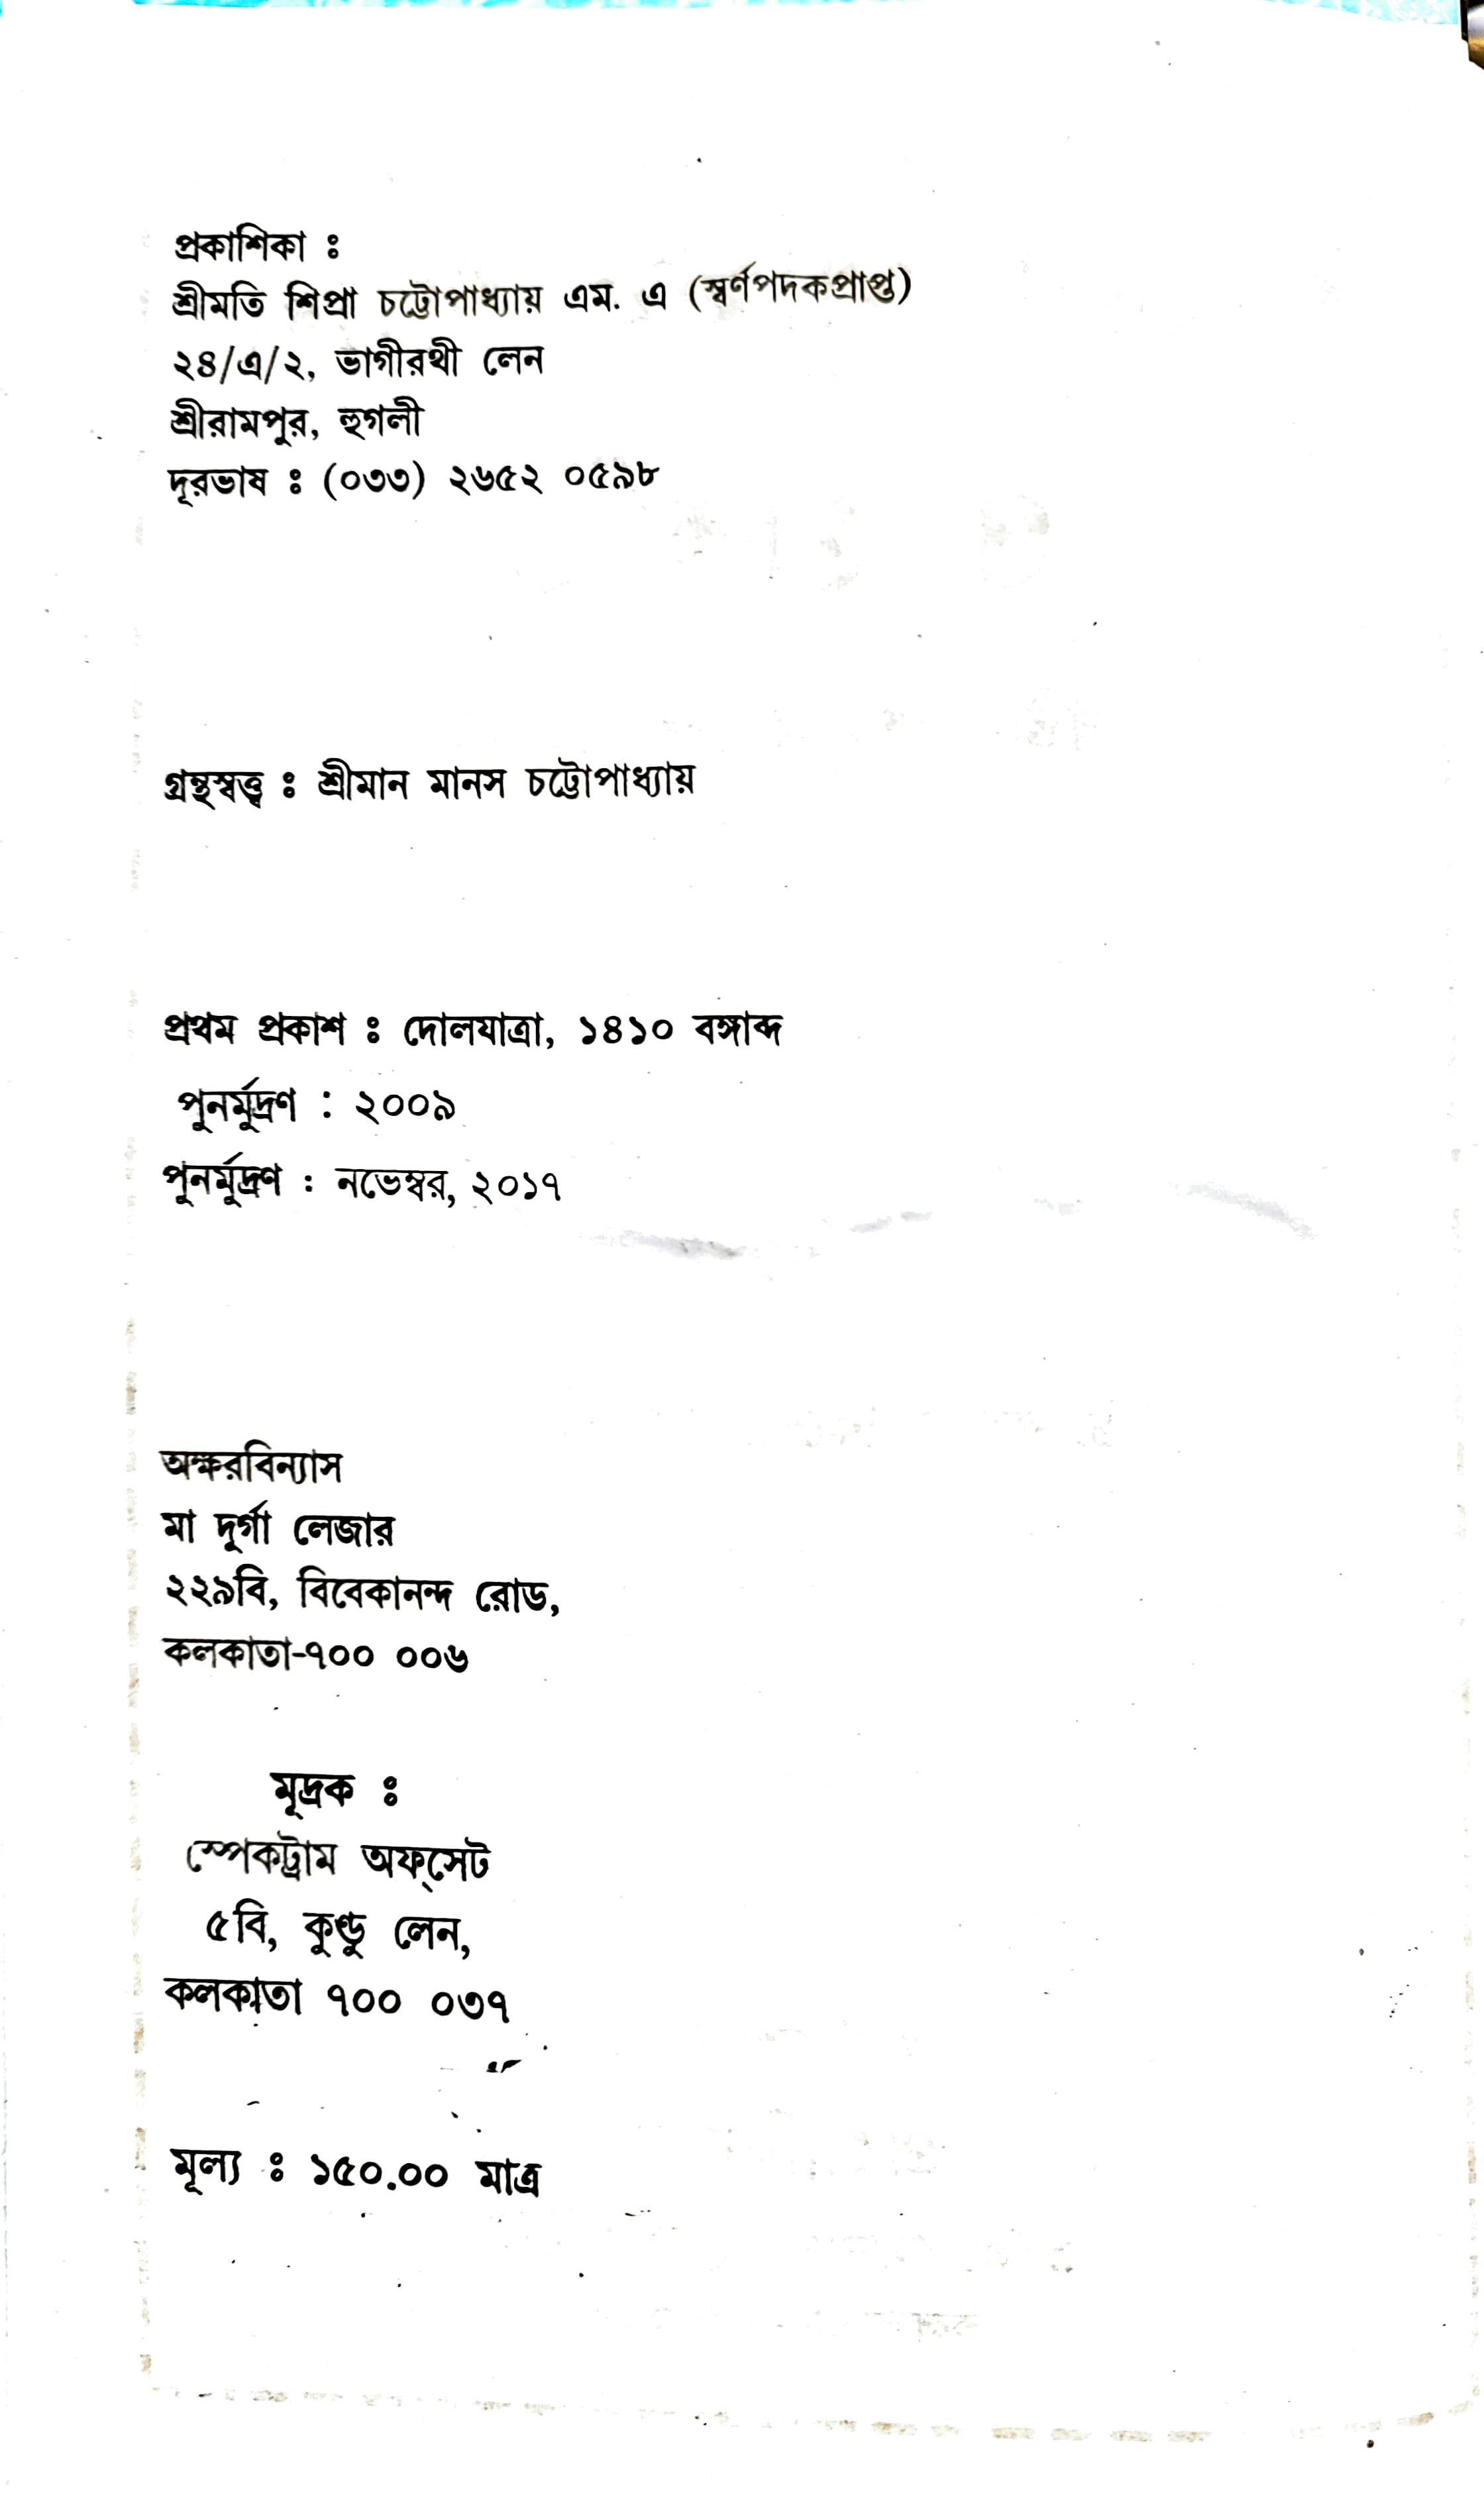 প্রকাশিকা ঃ
শ্রীমতি শিপ্রা চট্টোপাধ্যায় এম. এ (স্বর্ণপদকপ্রাপ্ত)
২৪/এ/২, ভাগীরথী লেন
শ্রীরামপুর, হুগলী
দূরভাষ ঃ (০৩৩) ২৬৫২ ০৫৯৮
গ্রন্থস্বত্ত্ব ঃ শ্রীমান মানস চট্টোপাধ্যায়
প্রথম প্রকাশ ঃ দোলযাত্রা, ১৪১০ বঙ্গাব্দ
পুনর্মুদ্রণ : ২০০৯
পুনর্মুদ্রণ : নভেম্বর, ২০১৭
অক্ষরবিন্যাস
মা দূর্গা লেজার
২২৯বি, বিবেকানন্দ রোড,
কলকাতা-৭০০ ০০৬
মূদ্রক ঃ
স্পেকট্রাম অফ্সেট
৫বি, কুণ্ডু লেন,
কলকাতা ৭০০ ০৩৭
মূল্য ঃ ১৫০.০০ মাত্র